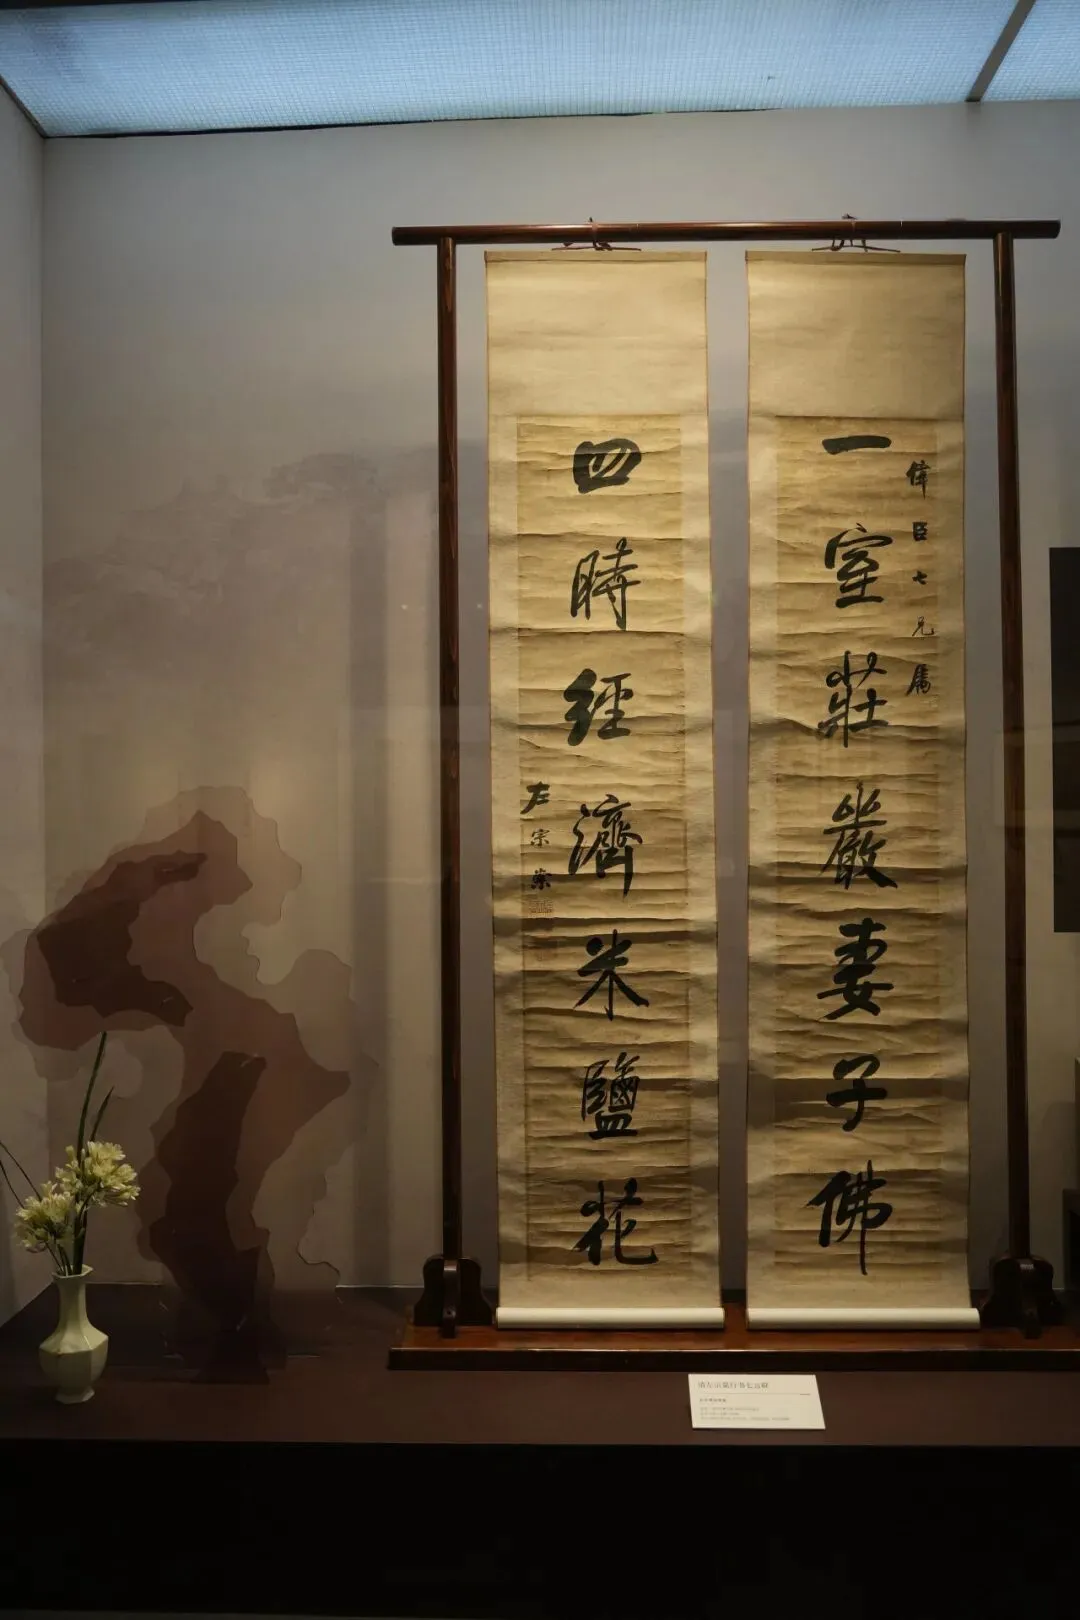 偉臣七兄属
一室莊嚴妻子佛
四時經濟米鹽花
左宗棠
清左宗棠行书七言联